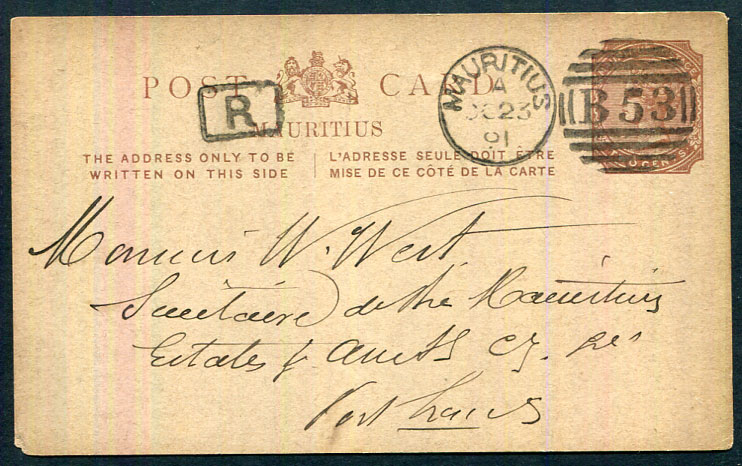 POST CARD
R
MAURITIUS
THE ADDRESS ONLY TO BE
WRITTEN ON THIS SIDE
L'ADRESSE SEULE DOIT ÊTRE
MISE DE CE CÔTÉ DE LA CARTE
MAURITIUS
A
DE 23
91
B 53
Monsieur W. West
Secrétaire de the Mauritius
Estates &
Port Louis